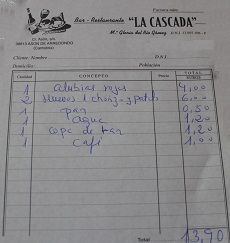 Factura núm.
Bar - Restaurante "LA CASCADA"
Mª Gloria del Río Gómez D.N.I.
C/. Asón, s/n.
39813 ASON DE ARREDONDO
(Cantabria)
Cliente: Nombre D.N.I.
Domicilio: Población
Cantidad CONCEPTO Precio TOTAL
EUROS
1 alubias rojas 4,00
2 Huevos 1 choriz. y patat 6,00
1 pan 0,50
1 agua 1,20
1 copa de tan 1,20
1 café 1,00
Total 13,90